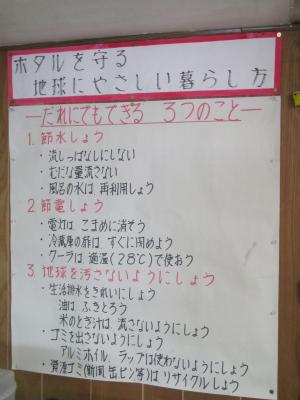 ホタルを守る
地球にやさしい暮らし方
―だれにでもできる 3つのこと―
1. 節水しよう
・流しっぱなしにしない
・むだな量流さない
・風呂の水は再利用しよう
2. 節電しよう
・電灯は こまめに消そう
・冷蔵庫の扉は、すぐに閉めよう
・クーラは適温(28℃)で使おう
3. 地球を汚さないようにしよう
・生活排水をきれいにしよう
油は、ふきとろう
米のとぎ汁は、流さないようにしよう
・ゴミを出さないようにしよう
アルミホイル、ラップは使わないようにしよう
・資源ゴミ(新聞、缶、ビン等)は リサイクルしよう